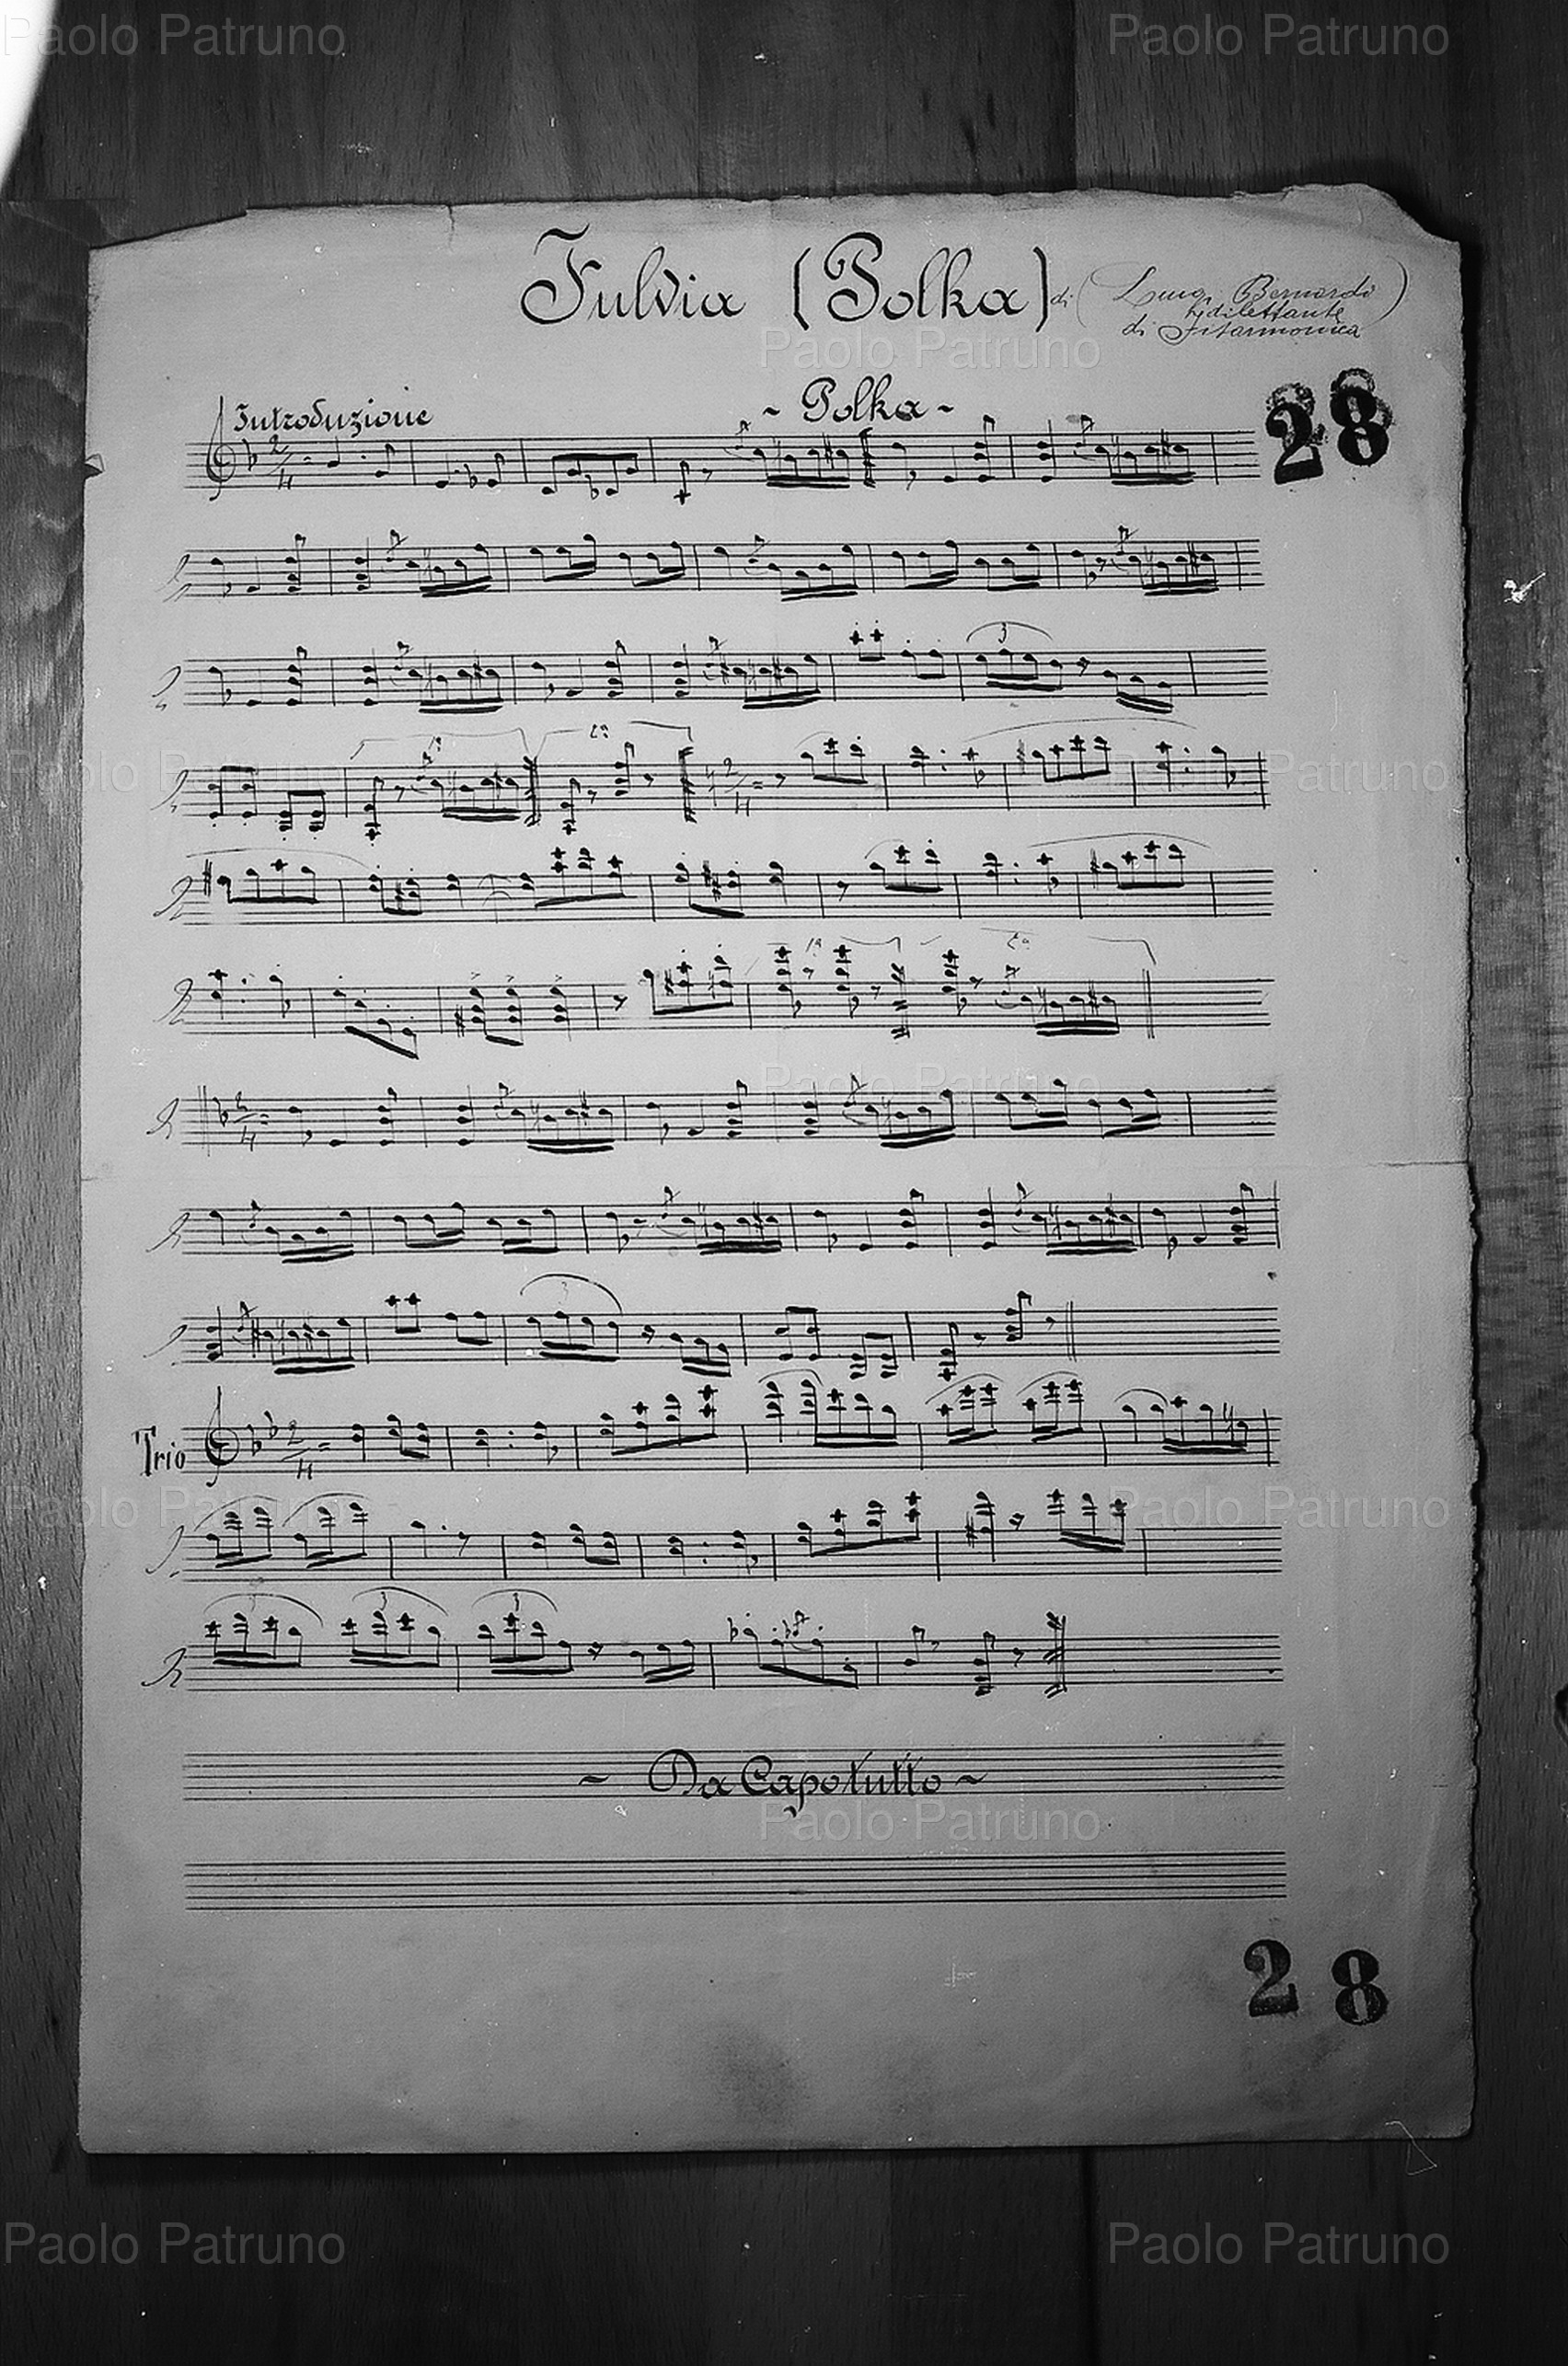 Paolo Patruno Paolo Patruno
Fulvia (Polka) di (Luigi Bernardi
dilettante
di Fisarmonica)
Paolo Patruno
Introduzione ~ Polka ~
28
2/4
3
Paolo Patruno Paolo Patruno
1a 2a
2/4
1a 2a
Paolo Patruno
2/4
3
Trio 2/4
Paolo Patruno Paolo Patruno
3 3
~ Da Capo tutto ~
Paolo Patruno
28
Paolo Patruno Paolo Patruno